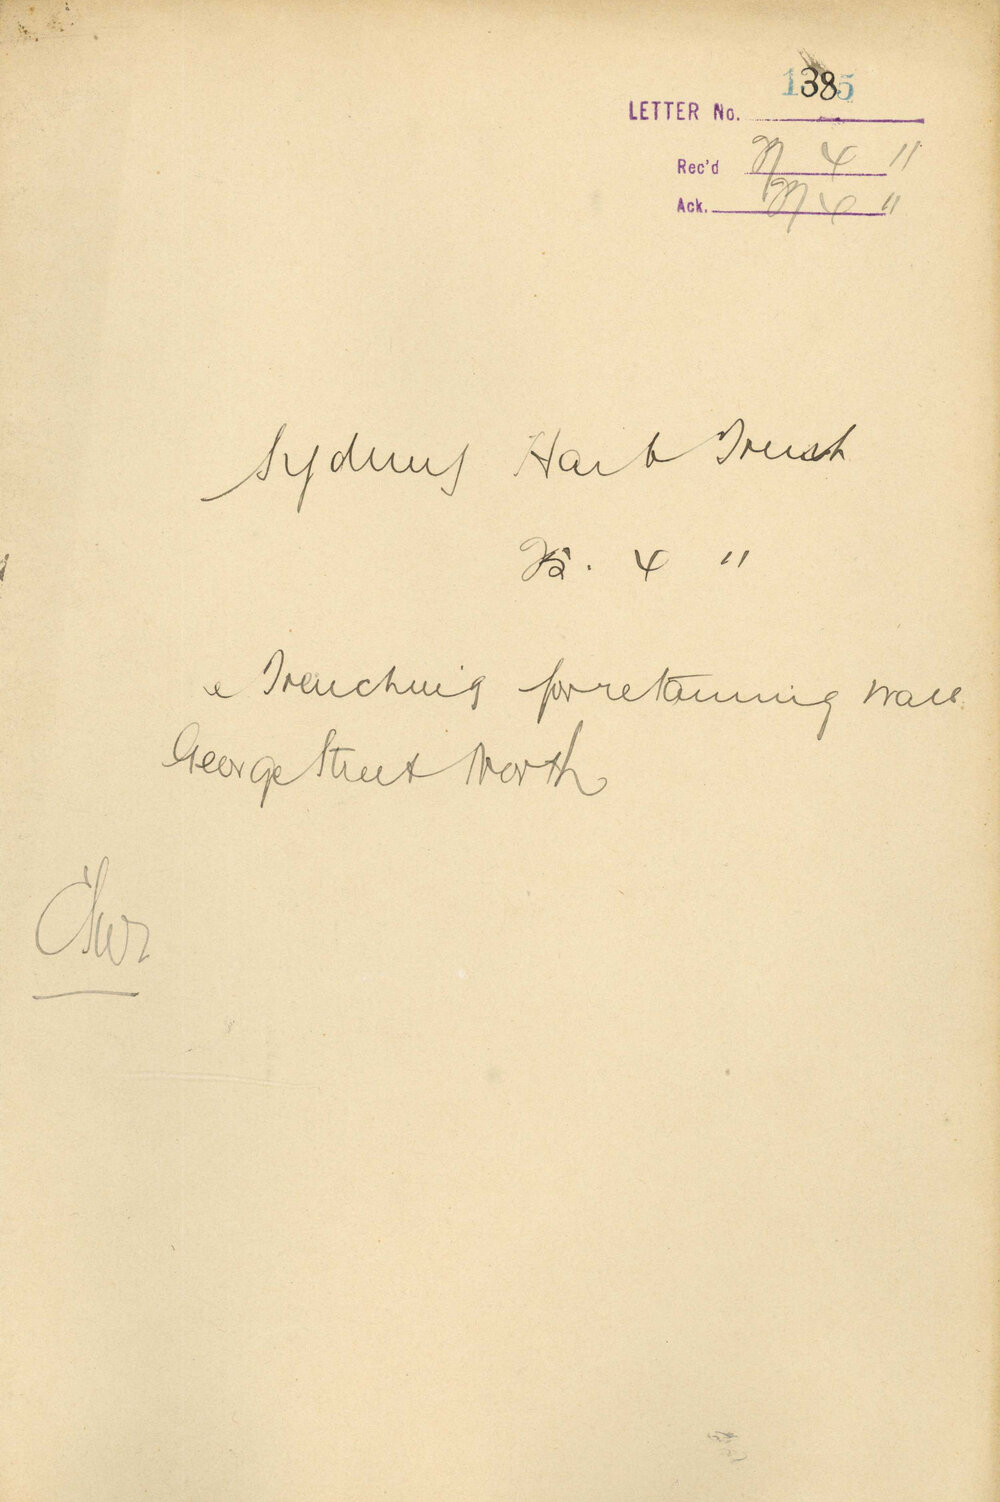 1385
LETTER No.
Rec'd 4 11
Ack. 4 11
Sydney Harb Trust
4 11
Trenching for retaining wall
George Street North